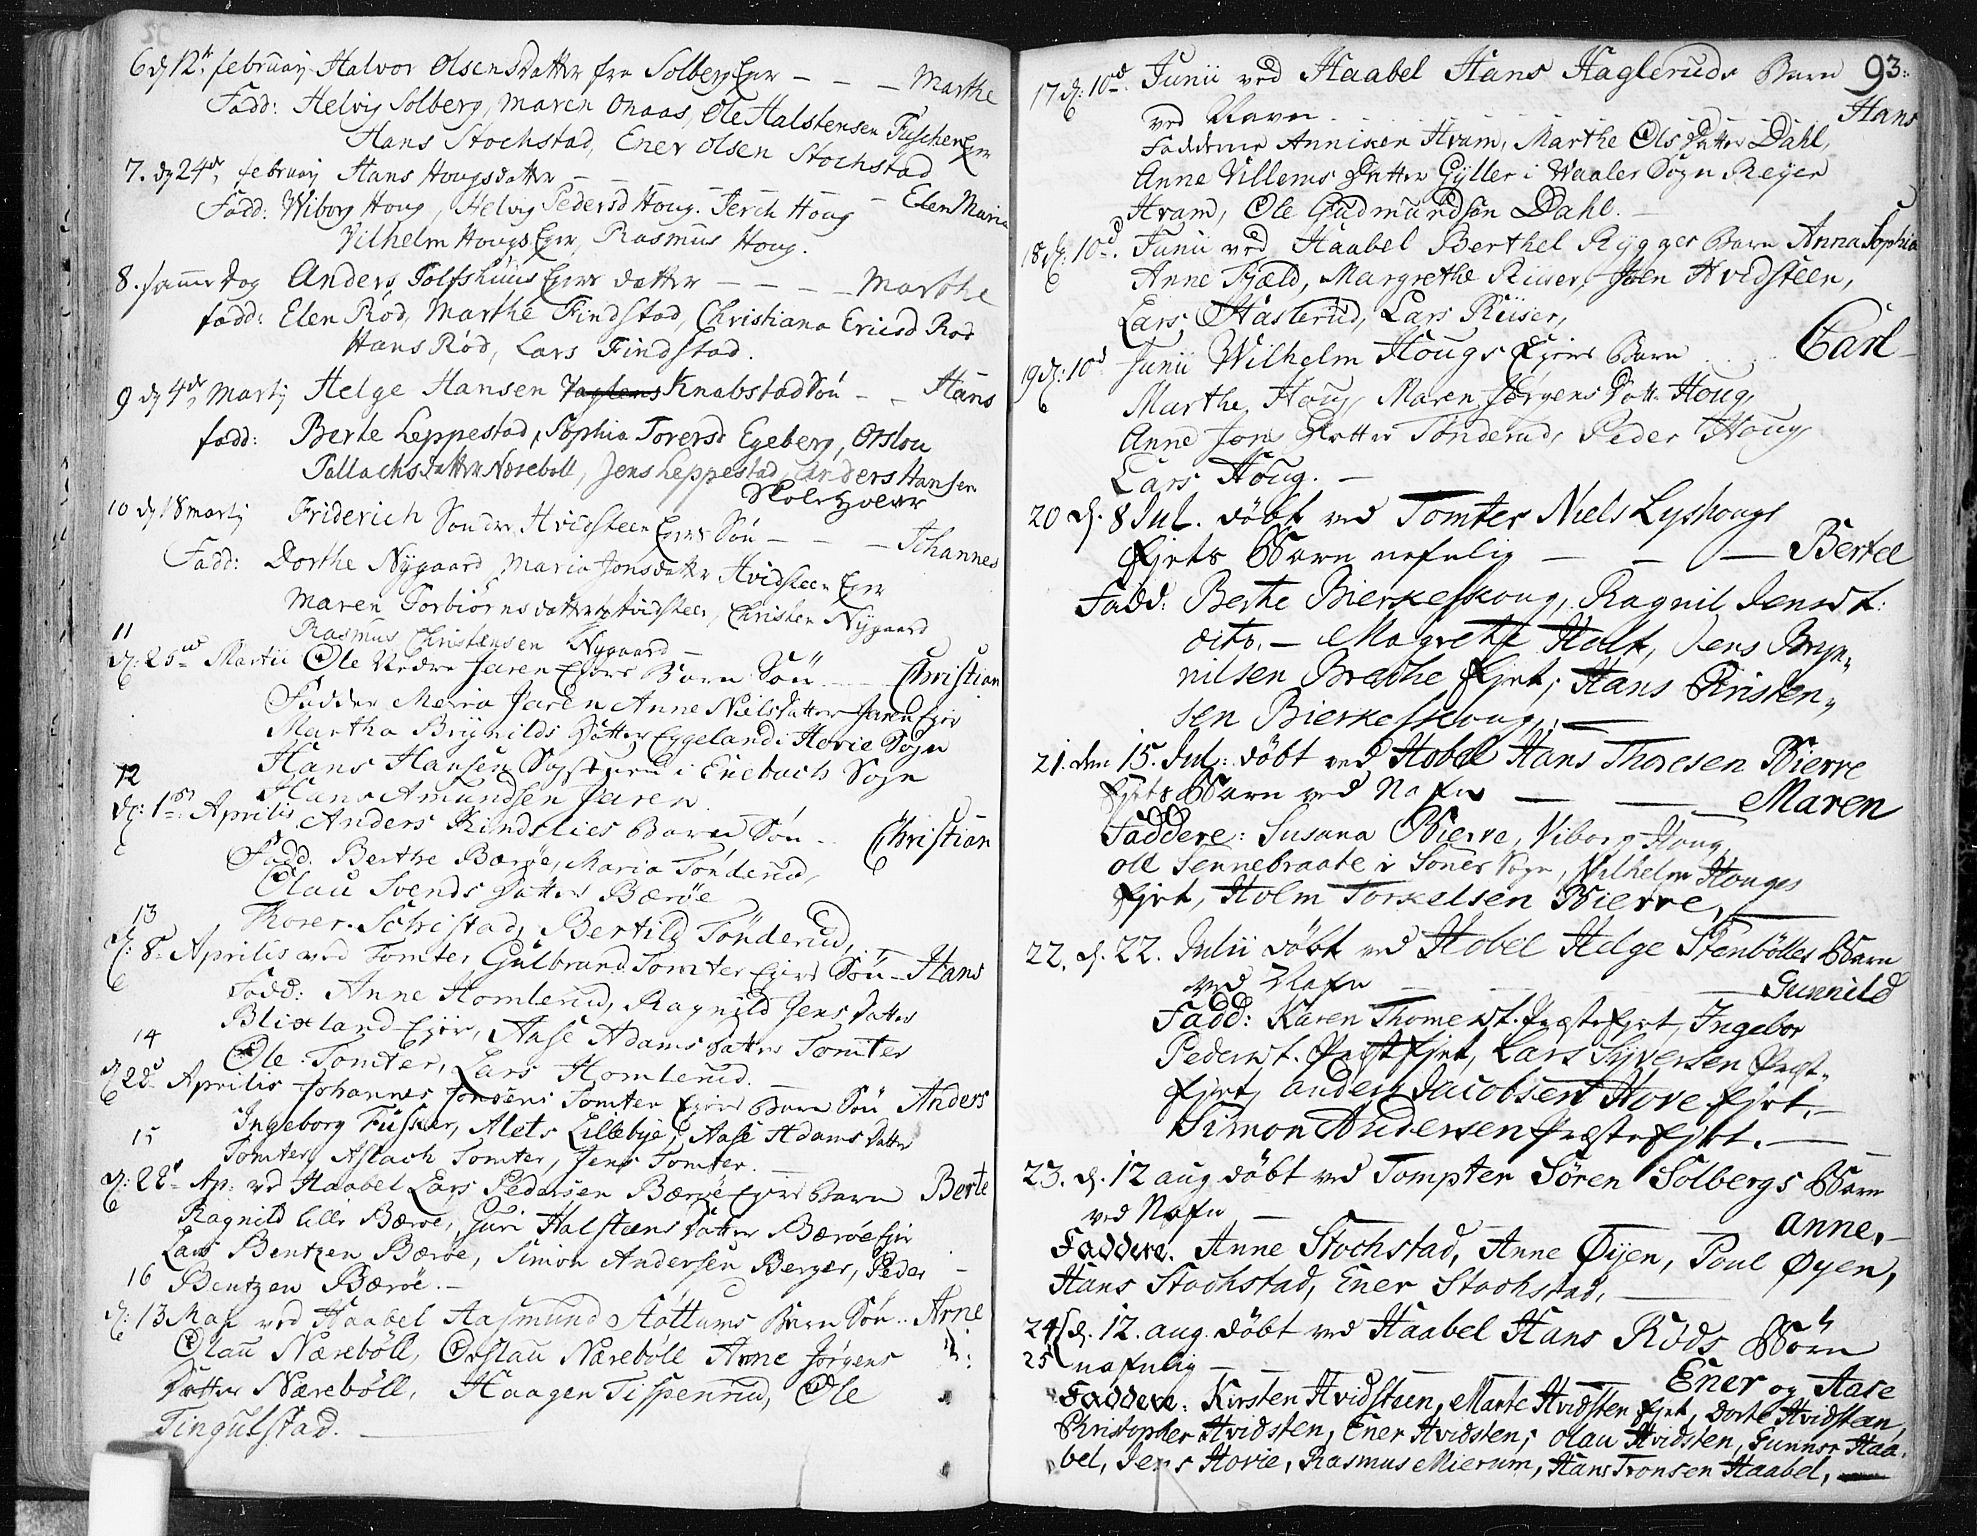 6 d 12te februarij Halvor Olsens datter fra Solberg Eyer - - - Marthe
Fadd: Helvig Solberg, Maren Onaas, Ole Halstensen Fuscher Eyr
Hans Stochstad, Ener Olsen Stochstad
7. d 24de februarij Hans Hougs datter - - - - - Elen Maria
Fadd: Wiborg Houg, Helvig Pedersd Houg. Jerch Houg
Vilhelm Hougs Eyer, Rasmus Houg.
8. samme Dag Anders Tolfshuus Eyers datter - - - - Marthe
fadd: Elen Röd, Marthe Findstad, Christiana Ericsd Rød
Hans Röd, Lars Findstad.
9 d 4de Martij Helge Hansen Knabstad Sön - - Hans
fadd: Berte Leppestad, Sophia Torersd Egeberg, Orslou
Tallachsdatter Nærebøll, Jens Leppestad, Anders Hansen
Skoleholder
10 d 18 martij Friderich Søndre Hvidsteen Eyers Sön - - - Johannes
Fadd: Dorthe Nÿgaard, Maria Jonsdatter Hvidsteen Eyer
Maren Torbiörnsdatter Hvidsteen, Christen Nÿgaard
Rasmus Christensen Nygaard -
11
d: 25de Martii Ole Nedre Jaren Ejers Barn Sön ... Christian
Fadder Maria Jaren Anne Niels datter Jaren Ejer
Martha Brÿnilds Datter Eggeland i Hovie Sogn
Hans Hansen i Enebach Sogn
Hans Amundsen Jaren.
12
d: 1ste Aprilis Anders Kindslies Barn Sön .. Christian
Fadd. Berthe Bærøe, Maria Tønderud,
Olau Svends Datter Bærøe
Thorer Schistad, Bertild Tönderud,
13
d: 8de Aprilis ved Tomter Gulbrand Tomter Ejers Sön - Hans
Fadd: Anne Homlerud, Ragnild Jens Datter
Blixland Ejer, Aase Adams datter Tomter
Ole Tomter, Lars Homlerud.
14
d 22de Aprilis Johannes Jonsens Tomter Ejers Barn Sön Anders
Ingeborg Füsker, Alets Lillebye, Aase Adams datter
Tomter, Aslach Tomter, Jens Tomter.
15
d: 22de Ap: ved Haabel Lars Pedersen Bærøe Ejers Barn Berte
Ragnild lille Bærøe, Guri Halstens Datter Bærøe Ejer
Lars Bentzen Bærøe, Simon Andersen Berger, Peder
Bentzen Bærøe. -
16
d: 13 Maj ved Haabel Aasmund Støttums Barn Sön .. Arne
Olau Nærebøll, Orslau Nærebøll Anne Jörgens
Datter Nærebøll, Haagen Tispenrud, Ole
Tingulstad.
93
17 d: 10de Junii ved Haabel Hans Hagleruds Barn
ved Navn . . . . . . . Hans
Fadderne Anniken Hvam, Marthe Ols Datter Dahl,
Anne Villems Datter Gyller i Waaler Sogn Reyer
Hvam, Ole Gudmundsen Dahl. -
18 d: 10de Junii ved Haabel Berthel Rÿgges Barn Anna Sophia
Anne Fjæld, Margrethe Riiser, Joen Hvidsteen,
Lars Haslerud, Lars Riiser,
19 d: 10de Junii Wilhelm Hougs Ejers Barn . . . Carl
Marthe Houg, Maren Jørgens Datt. Houg,
Anne Jons Datter Tønderud, Peder Houg
Lars Houg. -
20 d. 8 Jul. döbt ved Tomter Niels Lyshougs
Ejets Barn nafnlig - - - Bertel
Fadd: Berthe Bierkeskoug, Ragnil Jensdt.
dito. - Magrethe Halt, Jens Bryn,,
nilsen Brathe Ejet, Hans Kristen,,
sen Bierkeskoug, -
21. den 15. Jul: döbt ved Hobel Hans Thoresen Bierre
Ejets Barn ved Nafn - - Maren
Faddere: Susana Bierre, Viborg Houg
ole Sennebraate i Soner Sogn, Vilhelm Houges
Ejet, Holm Torkelsen Bierre,
22. d. 22. Julii döbt ved Hobel Helge Stenbölles Barn
ved Nafn - - - Gunnild
Fadd: Karen Thomesdt. Præste Ejet, Ingebor
Pedersdt. Præst Ejet, Lars Syversen Præst-
Ejet, anders Jacobsen Hove Ejet. -
Simon Andersen Præste Ejet. -
23. d. 12 aug döbt ved Tompter Sören Solbergs Barn
ved Nafn - - anne, -
Faddere. Anne Stochstad, Anne Øÿen, Poul Øyen,
Hans Stochstad, Ener Stochstad,
24 d. 12. aug. döbt ved Haabel Hans Röds Börn
25 nafnlig - - - Ener og Aase
Faddere: Kirsten Hvidsteen, Marte Hvidsten Ejet, Dorte Hvidsten,
Kristopher Hvidsten, Ener Hvidsten, olau Hvidsten, Gunnor Haa-
bel, Jens Hovie, Rasmus Mierum, Hans Tronsen Haabel,